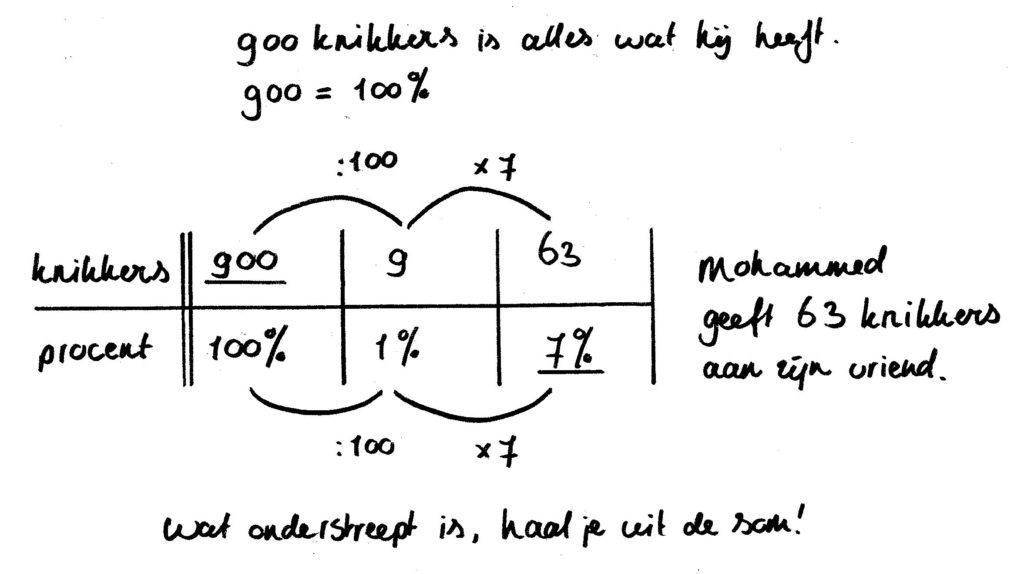 900 knikkers is alles wat hij heeft.
900 = 100%
:100 x 7
knikkers 900 9 63
procent 100% 1% 7%
:100 x 7
Mohammed
geeft 63 knikkers
aan zijn vriend.
Wat onderstreept is, haal je uit de som!